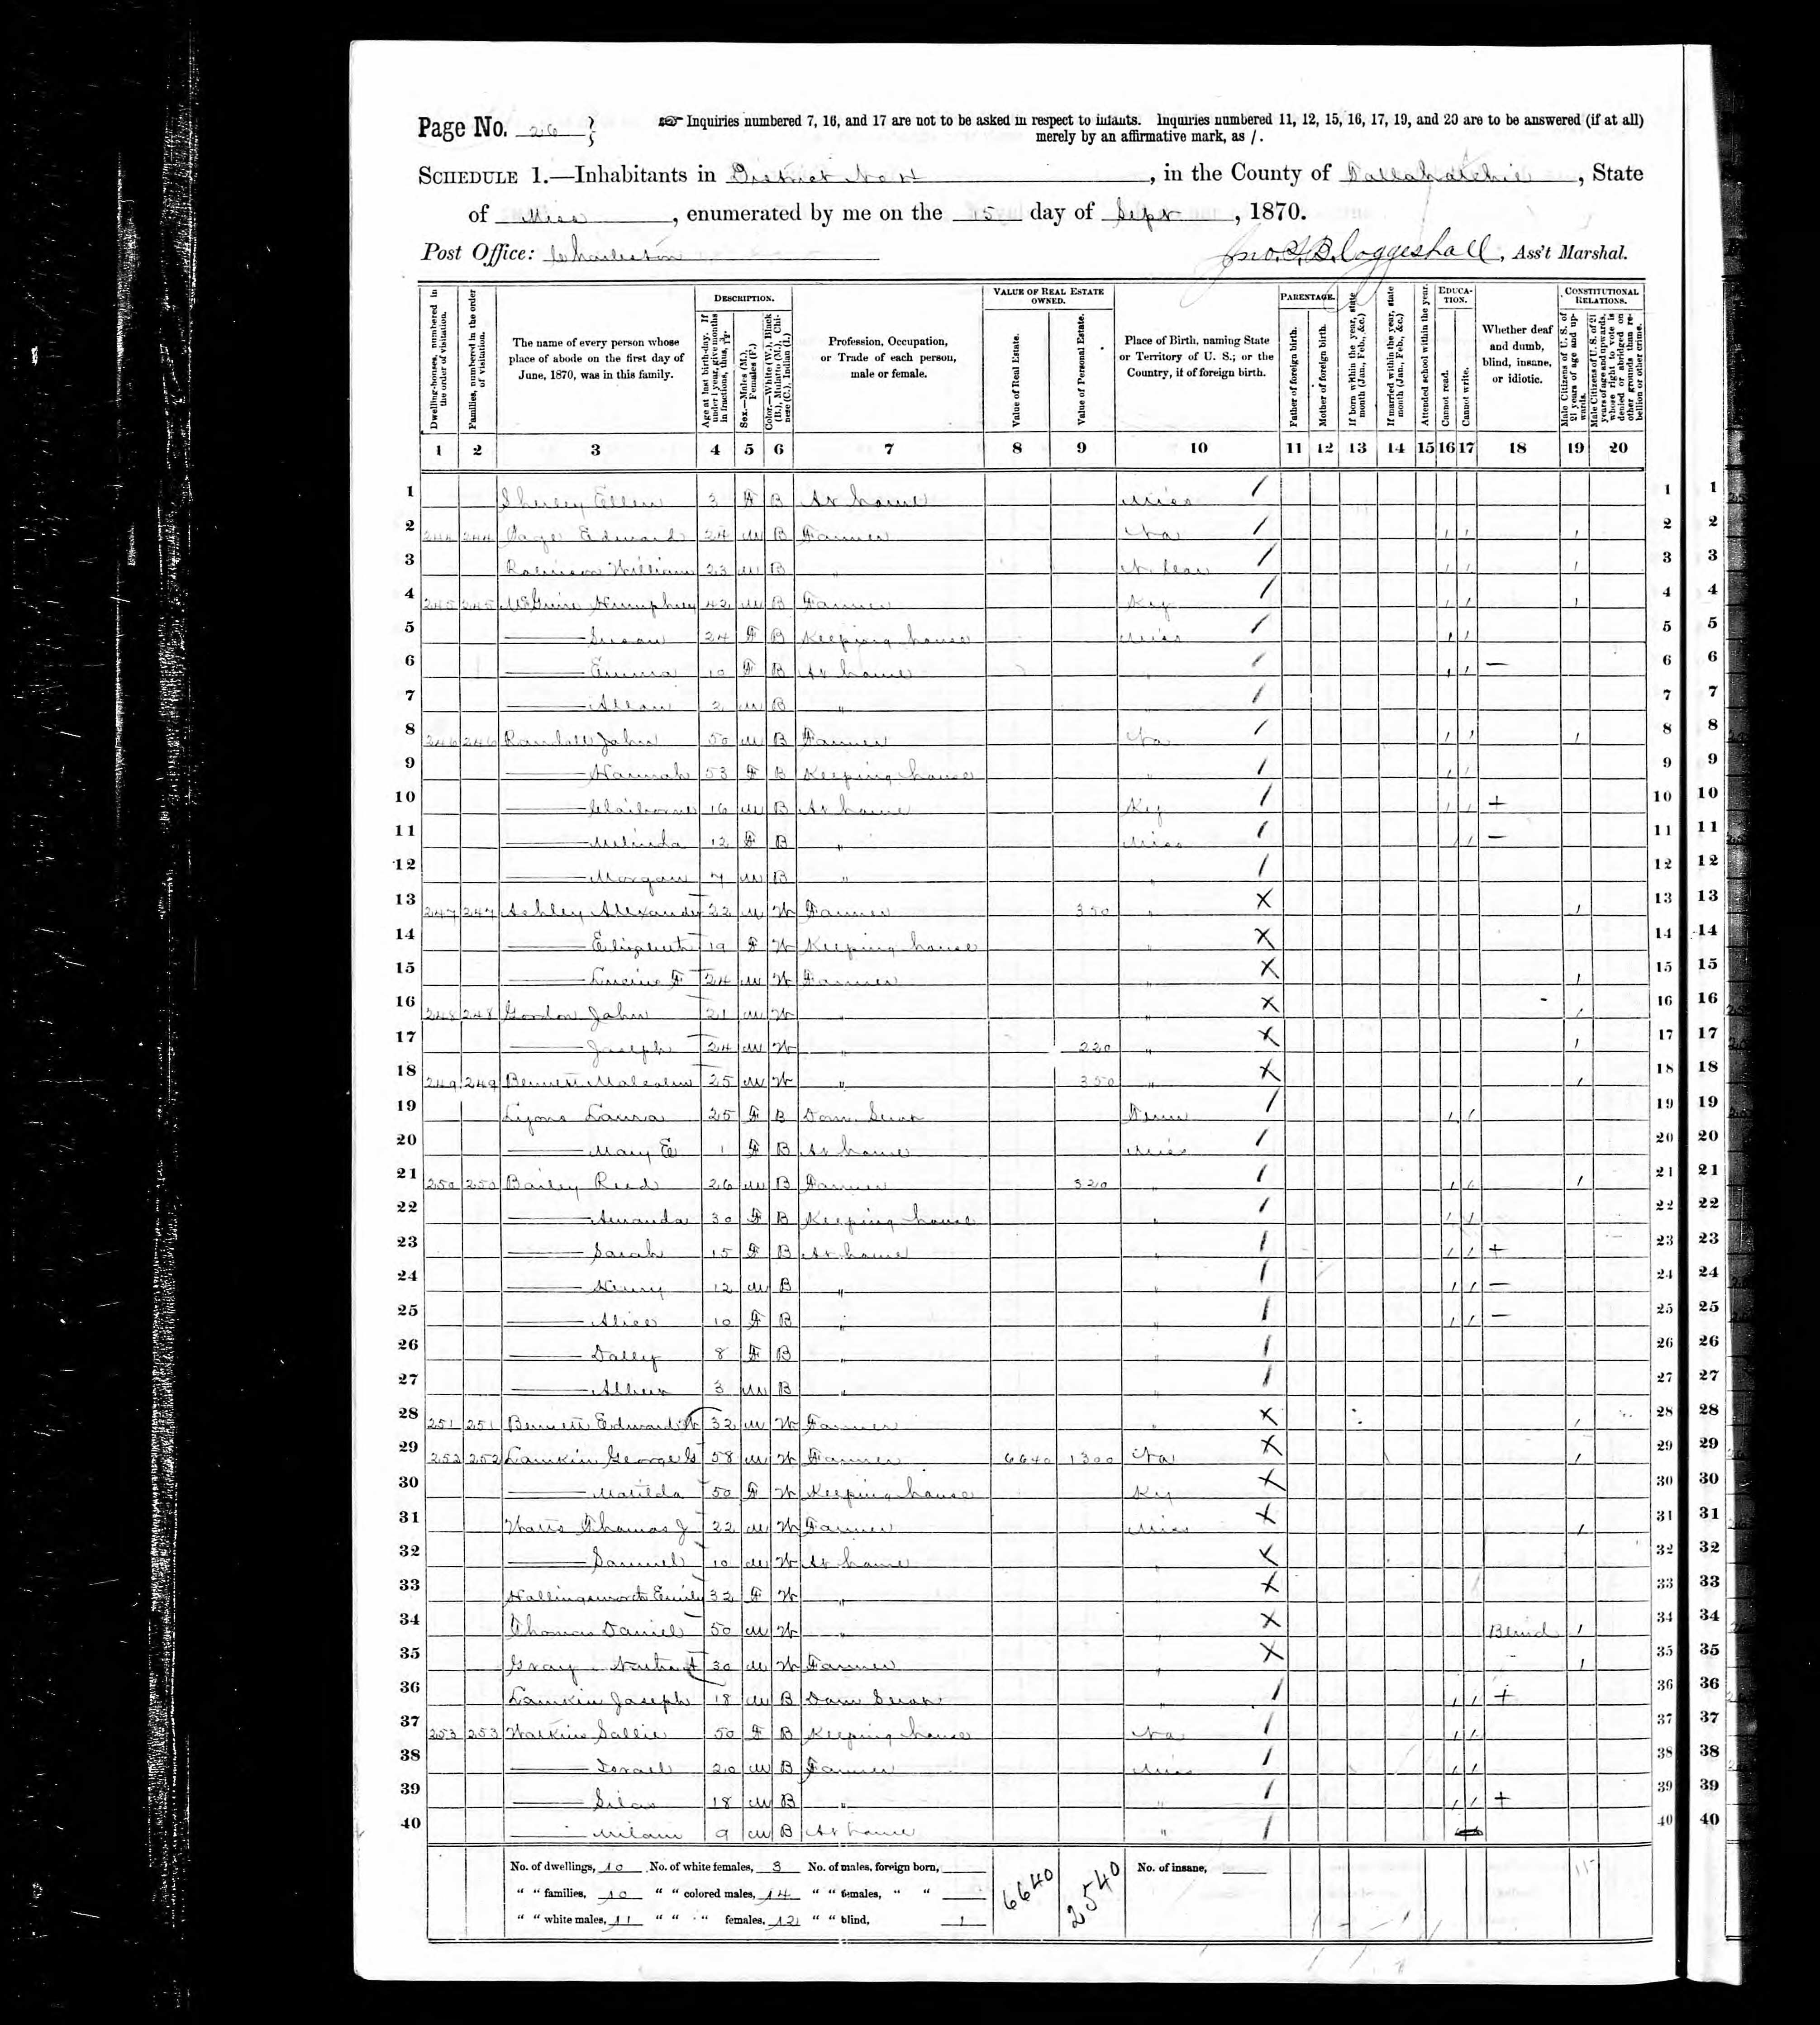 Page No. 26
Inquiries numbered 7, 16, and 17 are not to be asked in respect to infants. Inquiries numbered 11, 12, 15, 16, 17, 19, and 20 are to be answered (if at all)
merely by an affirmative mark, as /.
SCHEDULE 1.—Inhabitants in District No 4, in the County of Tallahatchie, State
of Miss, enumerated by me on the 15 day of Sept, 1870.
Post Office: Charleston Coggeshall, Ass't Marshal.
Dwelling-houses, numbered in the order of visitation.
Families, numbered in the order of visitation.
The name of every person whose place of abode on the first day of June, 1870, was in this family.
DESCRIPTION.
Age at last birth-day. If under 1 year, give months in fractions, thus,
Sex.—Males (M.), Females (F.)
Color.—White (W.), Black (B.), Mulatto (M.), Chinese (C.), Indian (I.)
Profession, Occupation, or Trade of each person, male or female.
VALUE OF REAL ESTATE OWNED.
Value of Real Estate.
Value of Personal Estate.
Place of Birth, naming State or Territory of U. S.; or the Country, if of foreign birth.
PARENTAGE.
Father of foreign birth.
Mother of foreign birth.
If born within the year, state month (Jan., Feb., &c.)
If married within the year, state month (Jan., Feb., &c.)
Attended school within the year.
EDUCATION.
Cannot read.
Cannot write.
Whether deaf and dumb, blind, insane, or idiotic.
CONSTITUTIONAL RELATIONS.
Male Citizens of U. S. of 21 years of age and upwards.
Male Citizens of U. S. of 21 years of age and upwards, whose right to vote is denied or abridged on other grounds than rebellion or other crime.
1 2 3 4 5 6 7 8 9 10 11 12 13 14 15 16 17 18 19 20
1 Ellen 3 F B At home Miss / 1 1
2 244 244 Page Edward 24 M B Farmer Va / / / / 2 2
3 Robinson William 23 M B " / / / / 3 3
4 245 245 McGuire Humphrey 42 M B Farmer Ky / / / / 4 4
5 — Susan 24 F B Keeping house Miss / / / 5 5
6 — Emma 10 F B At home " / / / — 6 6
7 — Allan 2 M B " " / 7 7
8 246 246 Randall John 50 M B Farmer Va / / / / 8 8
9 — Hannah 53 F B Keeping house " / / / 9 9
10 — Claiborne 16 M B At home Ky / / / + 10 10
11 — Melinda 12 F B " Miss / / — 11 11
12 — Morgan 7 M B " " / 12 12
13 247 247 Ashley Alexander 22 M W Farmer 350 " X / 13 13
14 — Elizabeth 19 F W Keeping house " X 14 14
15 — Lucius F 24 M W Farmer " X / 15 15
16 248 248 Gordon John 21 M W " " X / 16 16
17 — Joseph 24 M W " 220 " X / 17 17
18 249 249 Bennett Malcolm 25 M W " 350 " X / 18 18
19 Lyons Laura 25 F B Dom Servt Tenn / / / 19 19
20 — Mary E 1 F B At home Miss / 20 20
21 250 250 Bailey Reed 26 M B Farmer 320 " / / / / 21 21
22 — Amanda 30 F B Keeping house " / / / 22 22
23 — Sarah 15 F B At home " / / / + 23 23
24 — Henry 12 M B " " / / / — 24 24
25 — Alice 10 F B " " / / / — 25 25
26 — Dolly 8 F B " " / 26 26
27 — Albert 3 M B " " / 27 27
28 251 251 Bennett Edward 32 M W Farmer " X / 28 28
29 252 252 Lamkin George G 58 M W Farmer 6640 1300 Va X / 29 29
30 — Matilda 50 F W Keeping house Ky X 30 30
31 Watts Thomas J 22 M W Farmer Miss X / 31 31
32 — Samuel 10 M W At home " X 32 32
33 Hollingsworth Emily 32 F W " " X 33 33
34 Thomas Daniel 50 M W " " X Blind / 34 34
35 Gray 30 M W Farmer " X / 35 35
36 Lamkin Joseph 18 M B Dom Servt " / / / + 36 36
37 253 253 Watkins Sallie 50 F B Keeping house Va / / / 37 37
38 — Israel 20 M B Farmer Miss / / / 38 38
39 — Silas 18 M B " " / / / + 39 39
40 — Milam 9 M B At home " / 40 40
No. of dwellings, 10 No. of white females, 3 No. of males, foreign born, 6640 2540 No. of insane, 15
" " families, 10 " " colored males, 14 " " females, " "
" " white males, 11 " " " females, 12 " " blind, 1